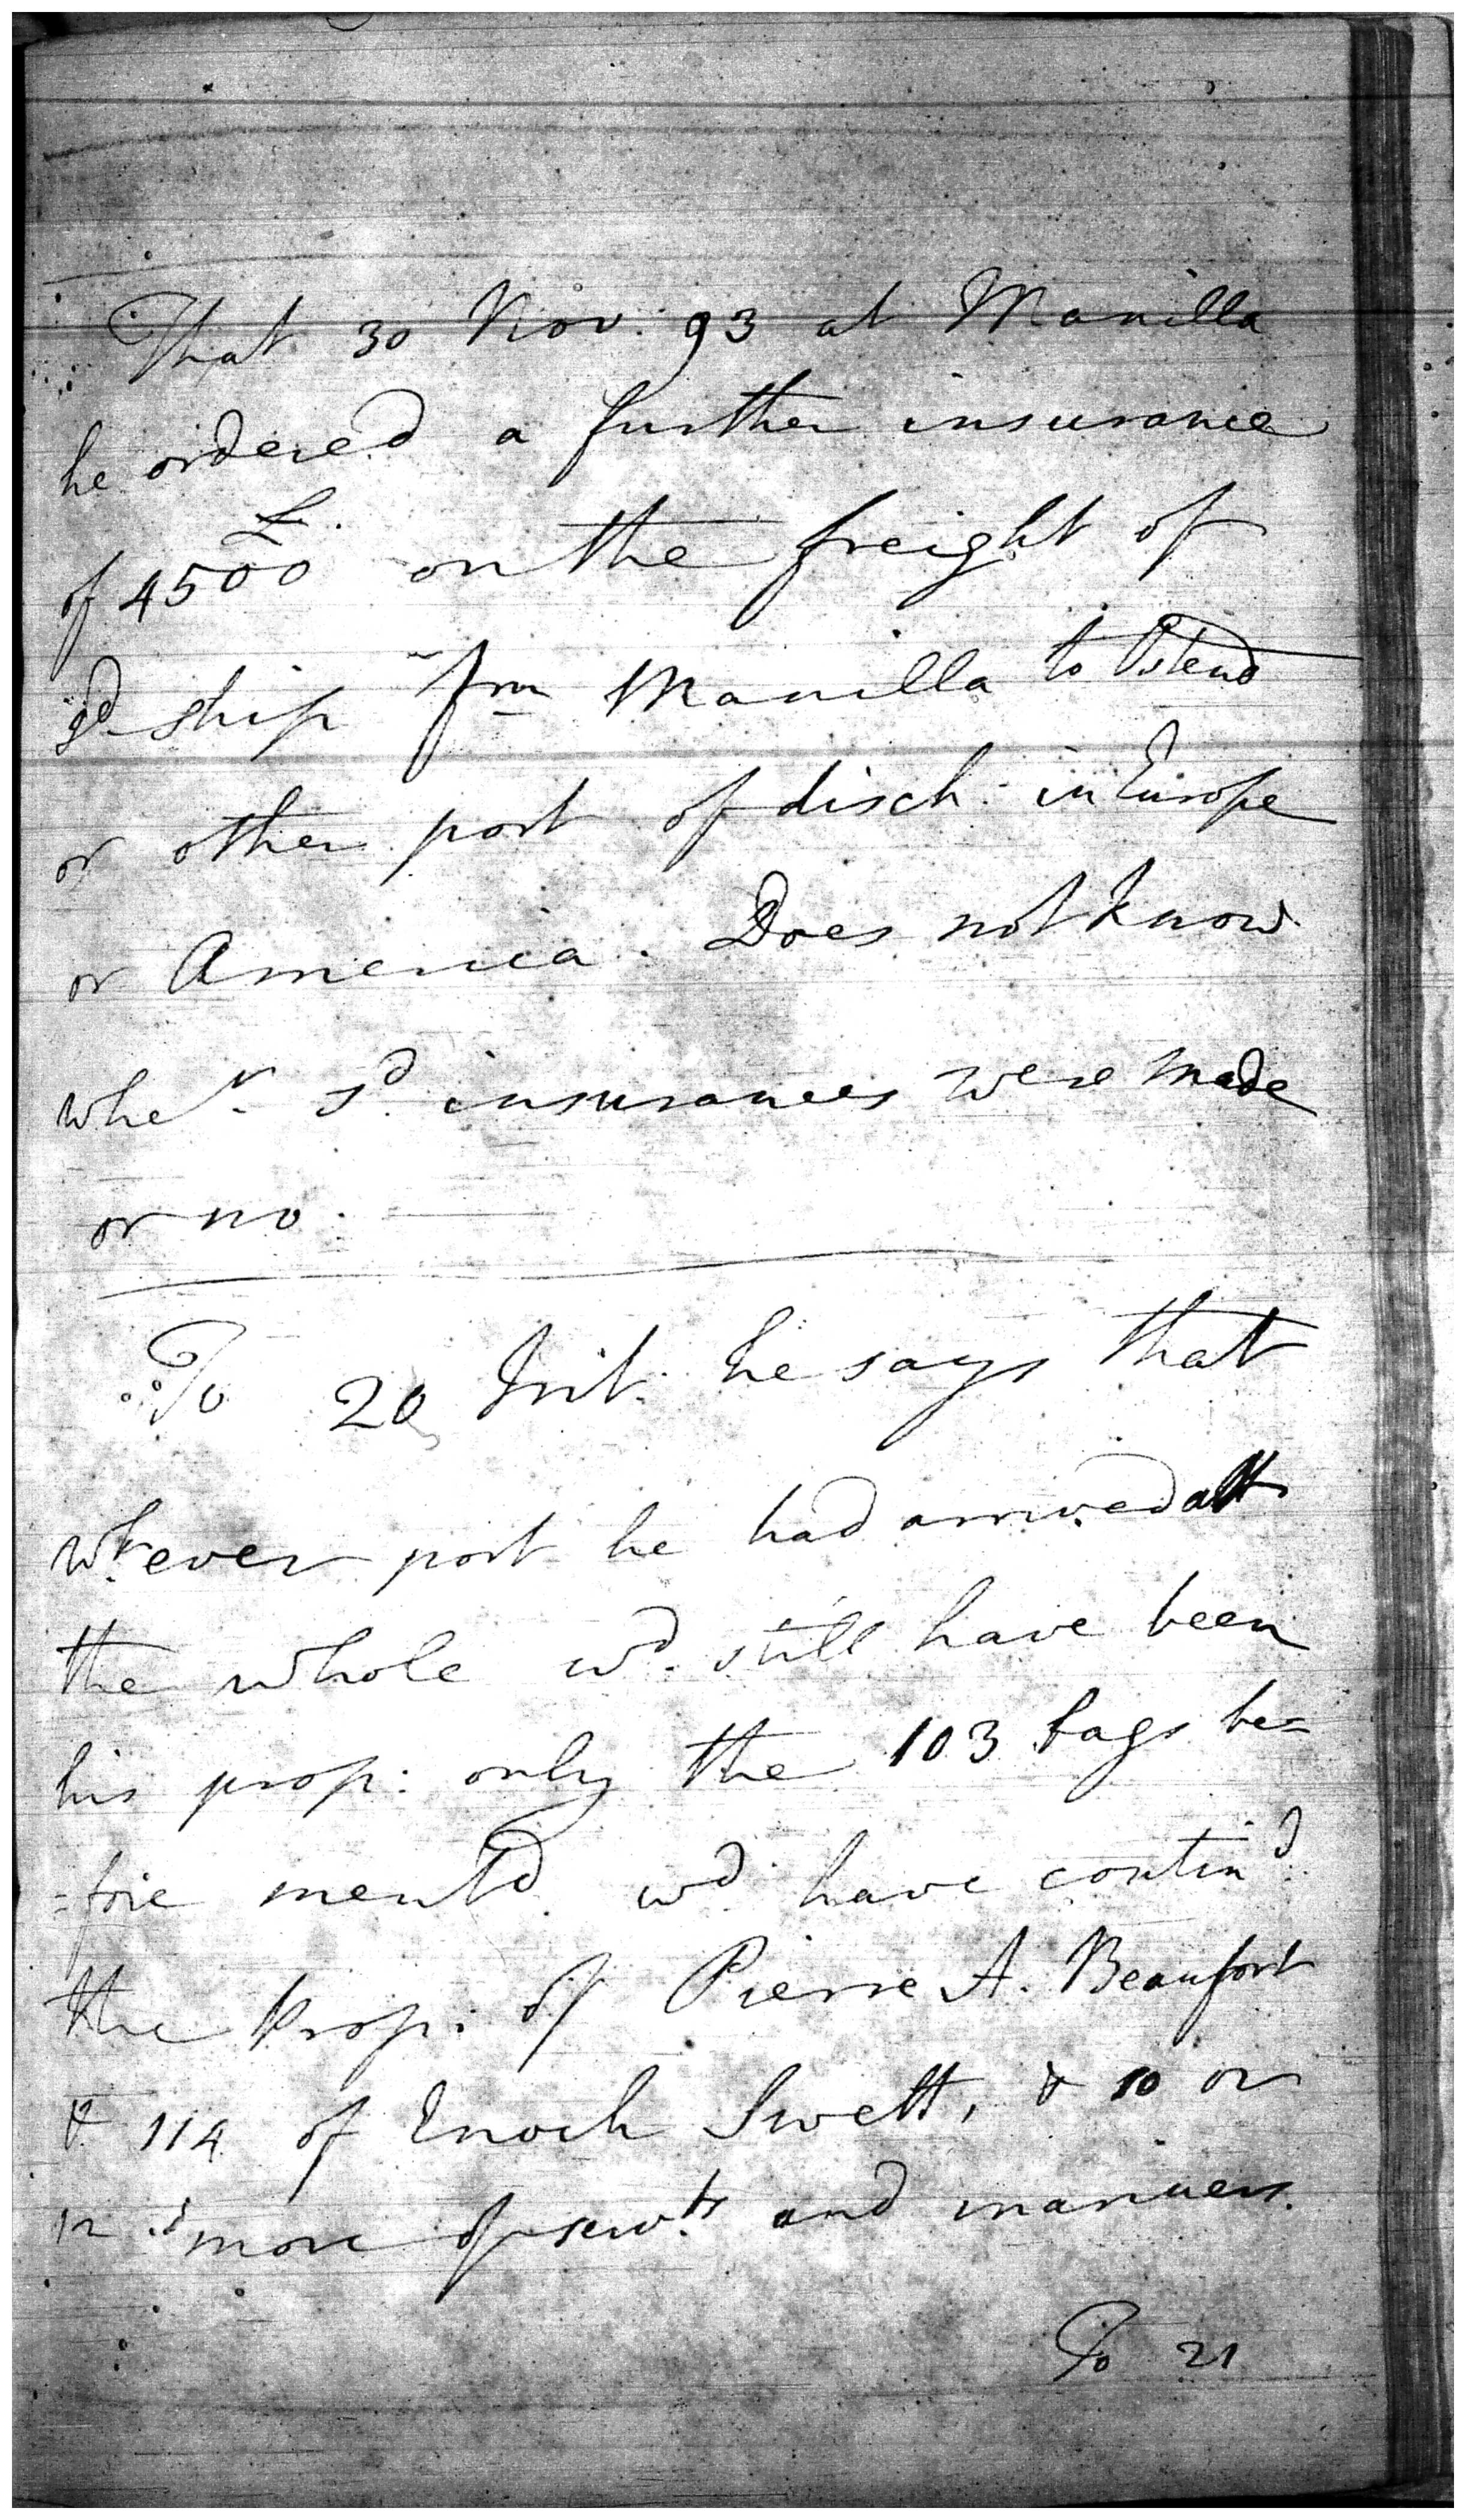 That 30 Nov: 93 at Manilla
he ordered a further insurance
of 4500£. on the freight of
sd ship frm Manilla to Ostend
or other port of disch: in Europe
or America. Does not know
wher. sd. insurances were made
or no.
To 20 Int: he says that
wt.ever port he had arrived att
the whole wd. still have been
his prop: only the 103 bags be=
=fore mentd. wd. have contind.
the Prop: of Pierre A. Beaufort
& 114 of Enoch Swett, & 10 or
12 more of servts. and mariners.
To 21